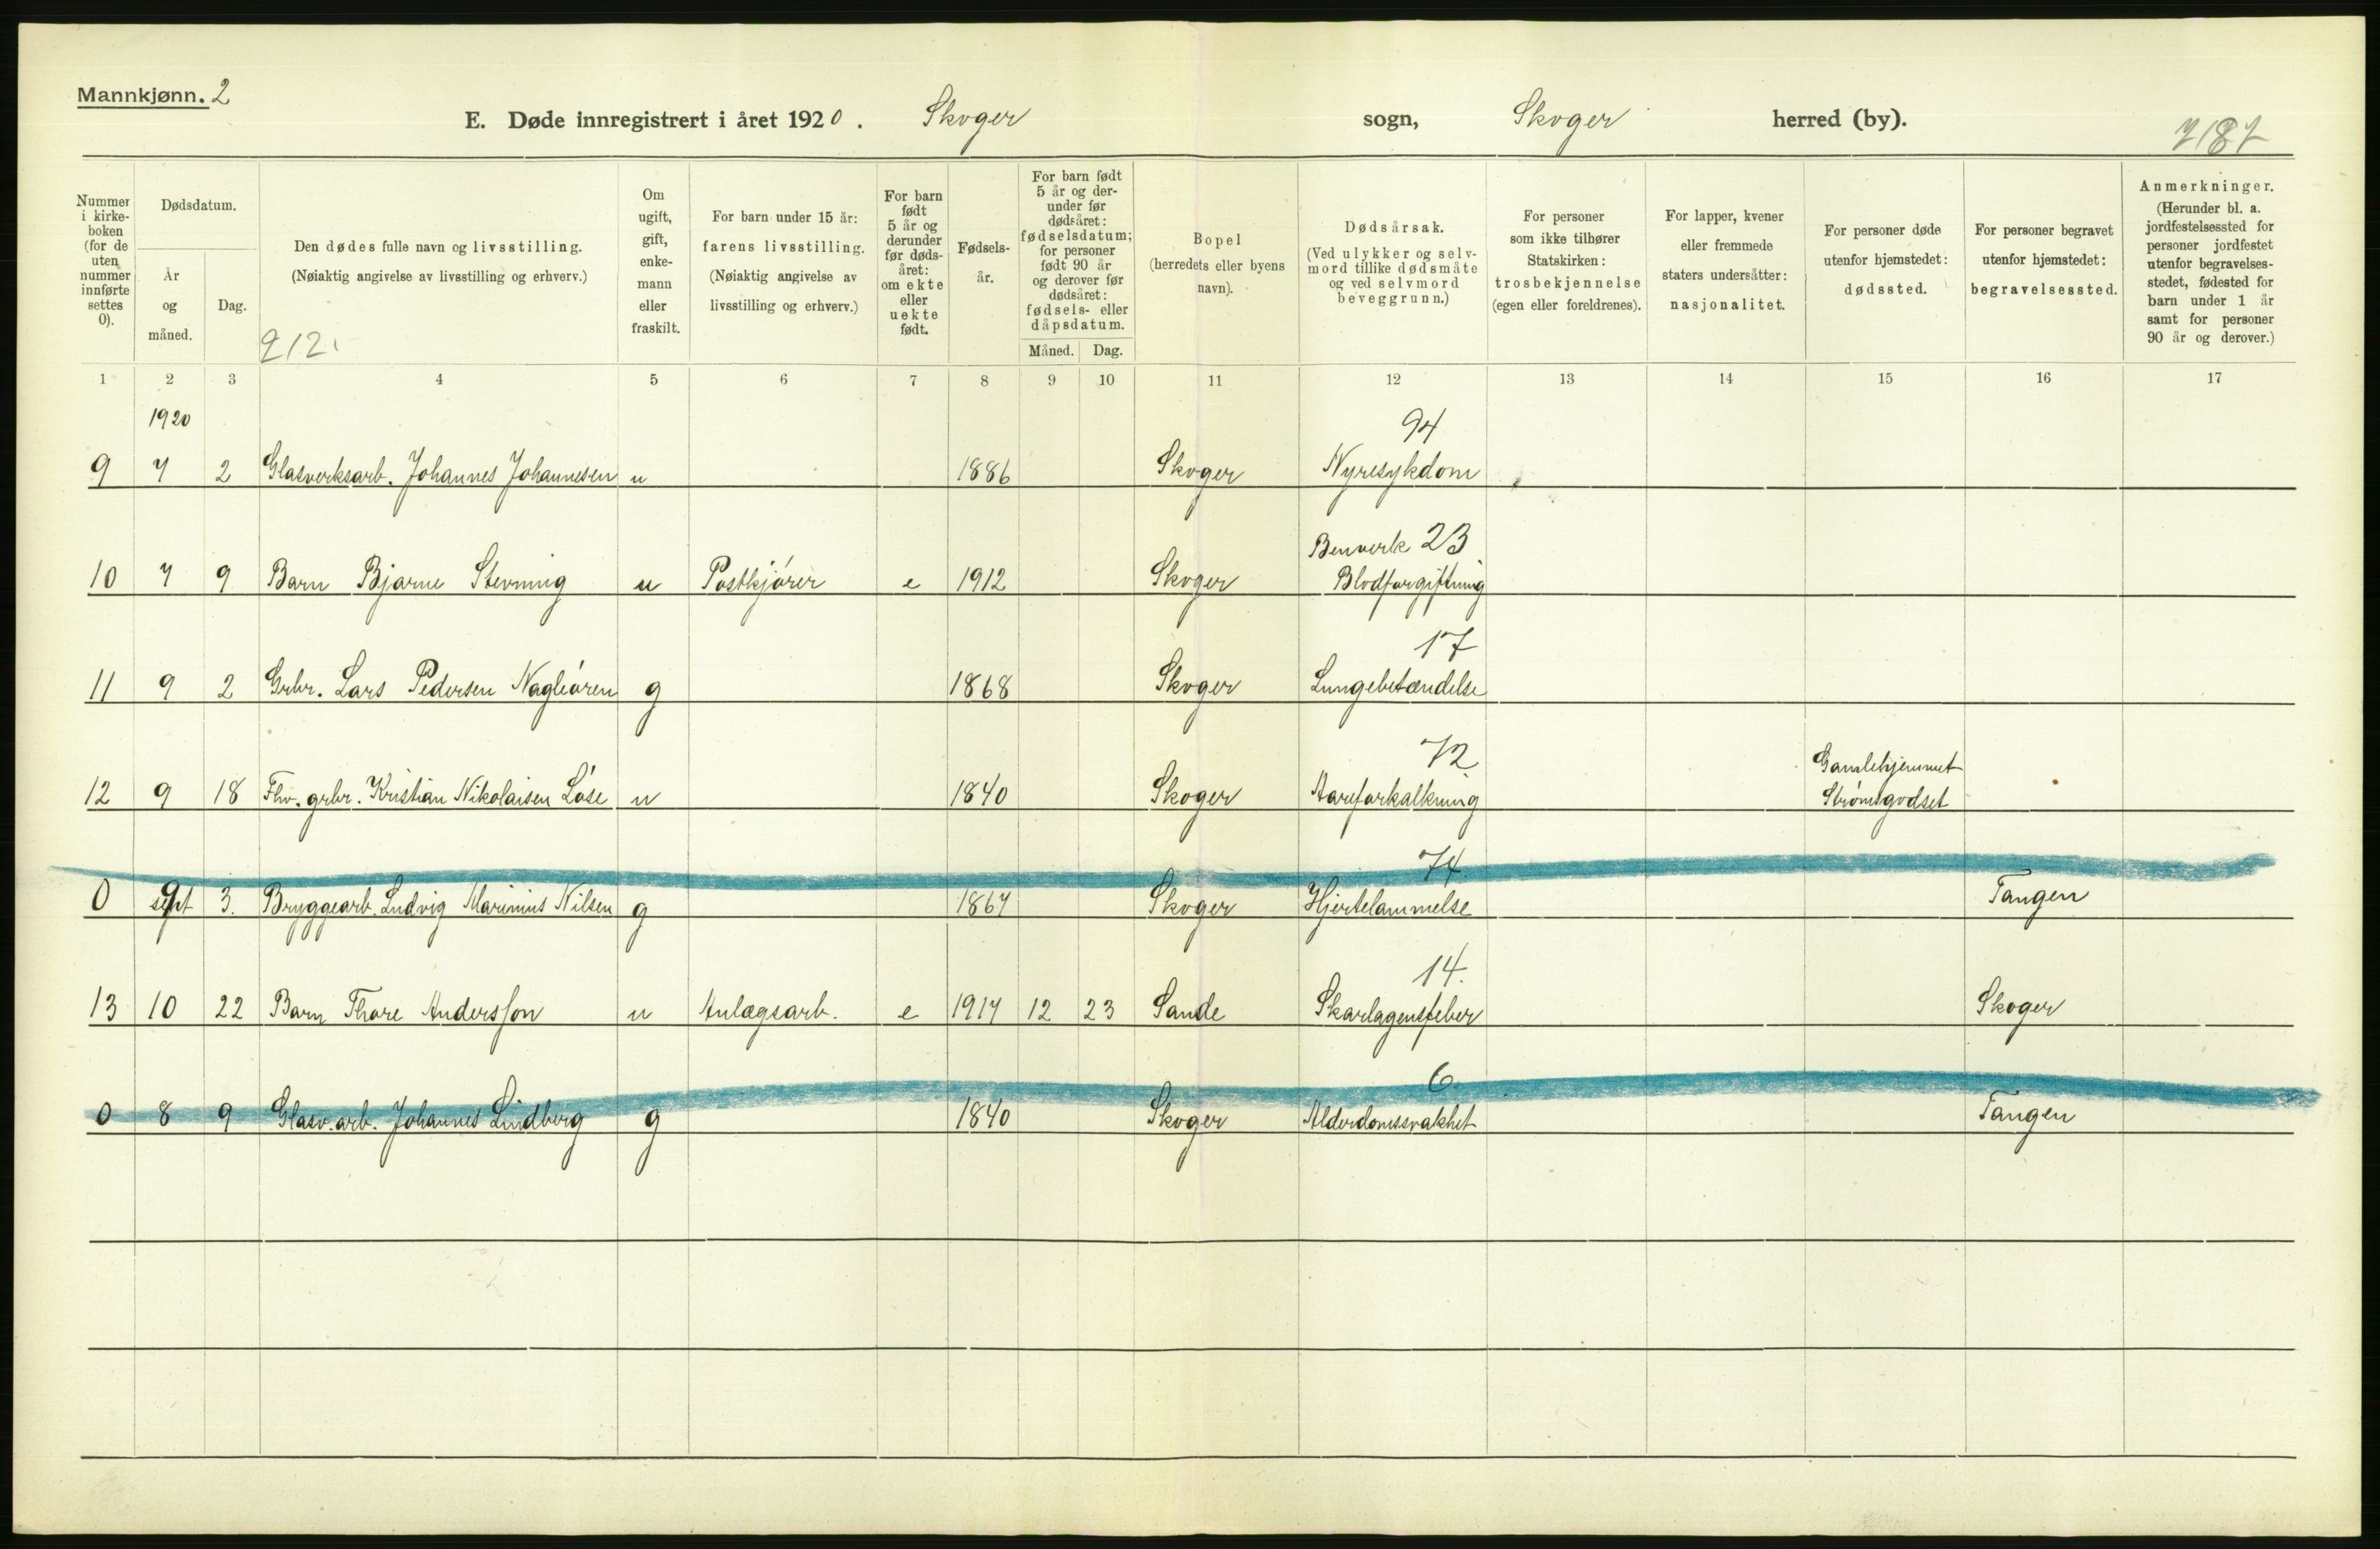 Mannkjønn. 2
E. Døde innregistrert i året 1920. Skoger sogn, Skoger herred (by).
7187
Nummer i kirke- boken (for de uten nummer innførte settes 0).
Dødsdatum.
År og måned.
Dag.
Den dødes fulle navn og livsstilling.
(Nøiaktig angivelse av livsstilling og erhverv.)
212
Om ugift, gift, enke- mann eller fraskilt.
For barn under 15 år:
farens livsstilling.
(Nøiaktig angivelse av
livsstilling og erhverv.)
For barn født 5 år og derunder før døds- året: om ekte eller uekte født.
Fødsels- år.
For barn født 5 år og der- under før dødsåret: fødselsdatum; for personer født 90 år og derover før dødsåret: fødsels- eller dåpsdatum.
Måned. Dag.
Bopel
(herredets eller byens
navn).
Dødsårsak.
(Ved ulykker og selv-
mord tillike dødsmåte
og ved selvmord
beveggrunn.)
For personer
som ikke tilhører
Statskirken:
trosbekjennelse
(egen eller foreldrenes).
For lapper, kvener
eller fremmede
staters undersåtter:
nasjonalitet.
For personer døde
utenfor hjemstedet:
dødssted.
For personer begravet
utenfor hjemstedet:
begravelsessted.
Anmerkninger.
(Herunder bl. a.
jordfestelsessted for
personer jordfestet
utenfor begravelses-
stedet, fødested for
barn under 1 år
samt for personer
90 år og derover.)
1 2 3 4 5 6 7 8 9 10 11 12 13 14 15 16 17
1920
94
9 7 2 Glasverksarb. Johannes Johannesen u 1886 Skoger Nyresykdom
Benverk 23
10 7 9 Barn Bjarne Stevning u Postkjører e 1912 Skoger Blodforgiftning
17
11 9 2 Grbr. Lars Pedersen Nagleøren g 1868 Skoger Lungebetændelse
72 Gamlehjemmet
12 9 18 Fhv. grbr. Kristian Nikolaisen Løse u 1840 Skoger Aareforkalkning Strømsgodset
74
0 sept 9 3. Bryggearb. Ludvig Marinius Nilsen g 1867 Skoger Hjertelammelse Tangen
14.
13 10 22 Barn Thore Andersson u Anlægsarb. e 1917 12 23 Sande Skarlagensfeber Skoger
6
0 8 9 Glasv. arb. Johannes Lindberg g 1840 Skoger Alderdomssvakhet Tangen